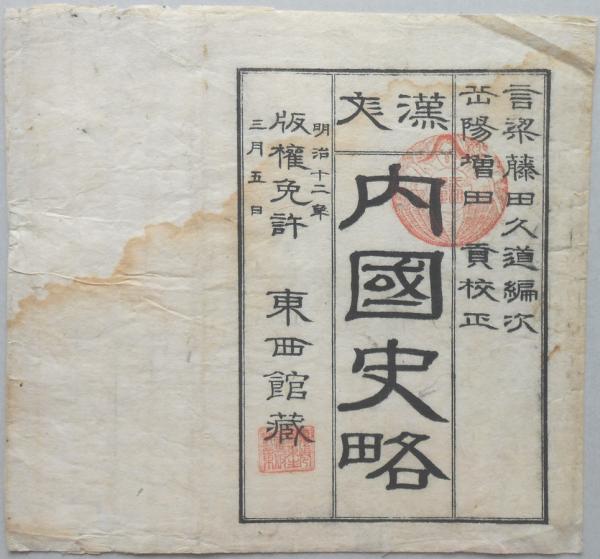 言梁藤田久道編次
岳陽増田 貢校正
漢文
内國史略
明治十二年
三月五日
版權免許
東西館藏